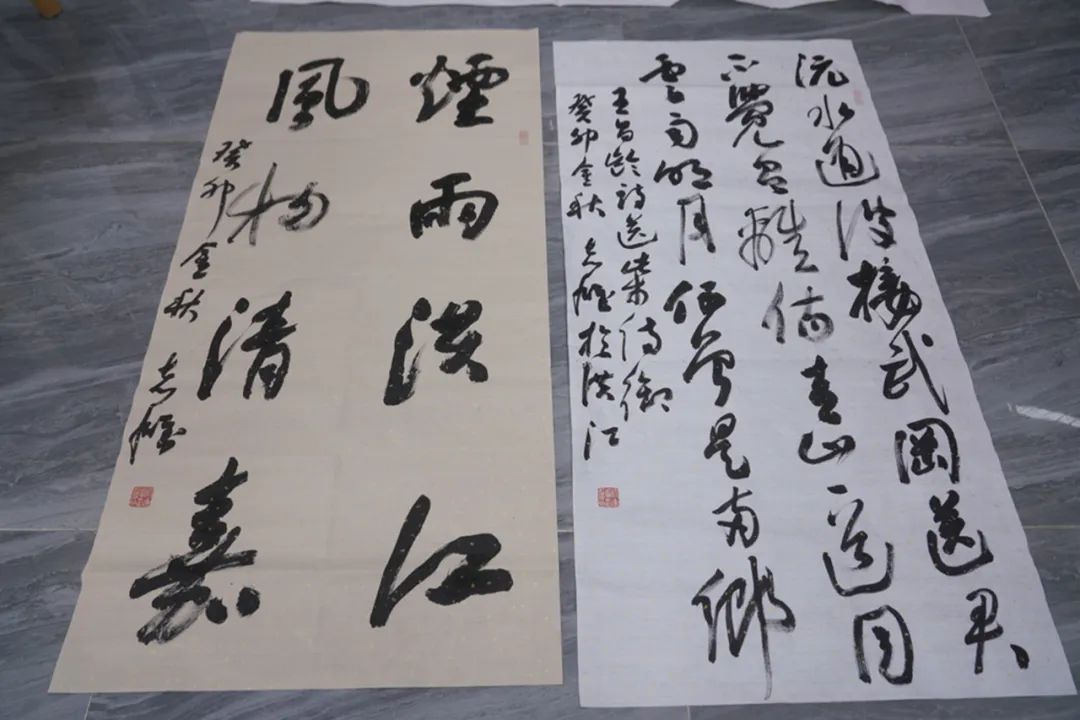 煙雨洪江
風物清嘉
癸卯金秋 志
沅水通波接武岡送君
不覺有離傷青山一道同
雲雨明月何曾是兩鄉
王昌齡詩送柴侍御
癸卯金秋 志於洪江